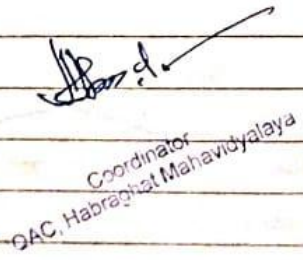 Coordinator
QAC, Habraghat Mahavidyalaya